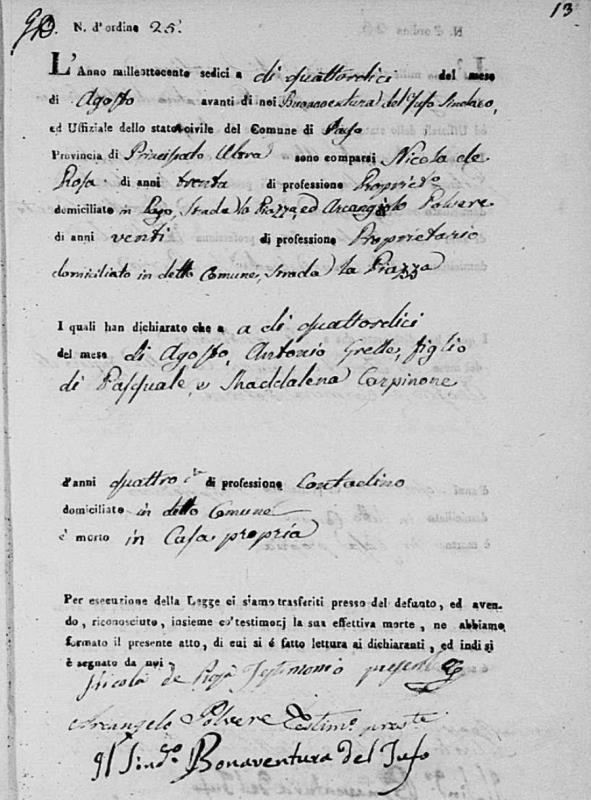 13
N. d'ordine 25.
L'Anno milleottocento sedici a dì quattordici del mese
di Agosto avanti di noi Buonaventura del Jufo Sindaco,
ed Uffiziale dello stato civile del Comune di Pago
Provincia di Principato Ultra sono comparsi Nicola de
Rosa di anni trenta di professione Propriet.º
domiciliato in Pago, Strada la Piazza, ed Arcangiolo Polvere
di anni venti di professione Proprietario
domiciliato in detto Comune, Strada la Piazza
I quali han dichiarato che a a dì quattordici
del mese di Agosto, Antonio Grelle, figlio
di Pasquale, e Maddalena Carpinone
d'anni quattro di professione Contadino
domiciliato in detto Comune
è morto in Casa propria
Per esecuzione della Legge ci siamo trasferiti presso del defunto, ed aven-
do, riconosciuto, insieme co'testimonj la sua effettiva morte, ne abbiamo
formato il presente atto, di cui si é fatto lettura ai dichiaranti, ed indi si
è segnato da noi
Nicola de Rosa Testimonio presente
Arcangelo Polvere Testim.º pres.te
Il Sind.º Bonaventura del Jufo